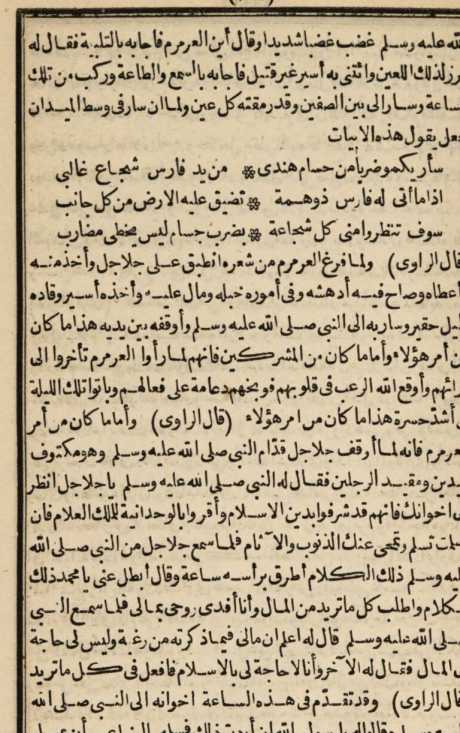 الله عليه وسلم غضب غضبا شديدا وقال أين العرمرم فاجابه بالتلبية فقال له
ابرز لذلك اللعين وائتنى به أسير غير قتيل فاجابه بالسمع والطاعة وركب من تلك
الساعة وسار الى بين الصفين وقدر مقته كل عين ولما ان سار فى وسط الميدان
جعل يقول هذه الابيات
سأريكمو ضرباً من حسام هندى ۞ من يد فارس شجاع غالبى
اذا ما أتى له فارس ذو همة ۞ تضيق عليه الارض من كل جانب
سوف تنظروا منى كل شجاعة ۞ بضرب حسام ليس يخطى مضارب
قال الراوى) ولما فرغ العرمرم من شعره انطبق على جلاجل وأخذ منه
أعطاه وصاح فيه أدهشه وفى أموره خبله ومال عليه وأخذه أسير وقاده
ذليل حقير وسار به الى النبى صلى الله عليه وسلم وأوقفه بين يديه هذا ما كان
من أمر هؤلاء وأما ما كان من المشركين فانهم لما رأوا العرمرم تأخروا الى
ورائهم وأوقع الله الرعب فى قلوبهم فوبخهم دعامة على فعالهم وباتوا تلك الليلة
فى أشد حسرة هذا ما كان من امر هؤلاء (قال الراوى) وأما ما كان من أمر
العرمرم فانه لما أوقف جلاجل قدّام النبى صلى الله عليه وسلم وهو مكتوف
اليدين ومقيد الرجلين فقال له النبى صلى الله عليه وسلم يا جلاجل انظر
الى اخوانك فانهم قد شرفوا بدين الاسلام وأقروا بالوحدانية للملك العلام فان
أسلمت تسلم وتمحى عنك الذنوب والآثام فلما سمع جلاجل من النبى صلى الله
عليه وسلم ذلك الكلام أطرق برأسه ساعة وقال أبطل عنى يا محمد ذلك
الكلام واطلب كل ما تريد من المال وأنا أفدى روحى بمالى فلما سمع النبى
صلى الله عليه وسلم قال له اعلم ان مالى فيما ذكرته من رغبة وليس لى حاجة
فى المال فقال له الآخر وأنا لا حاجة لى بالاسلام فافعل فى كل ما تريد
قال الراوى) وقد تقدّم فى هذه الساعة اخوانه الى النبى صلى الله